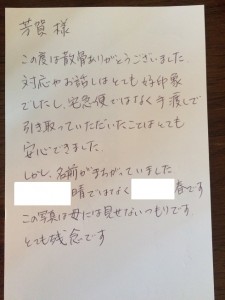 芳賀 様
この度は散骨ありがとうございました
対応やお話しはとても好印象
でしたし、宅急便ではなく手渡しで
引き取っていただいたことはとても
安心できました。
しかし、名前がまちがっていました
晴ではなく 春です
この写真は母には見せないつもりです
とても残念です